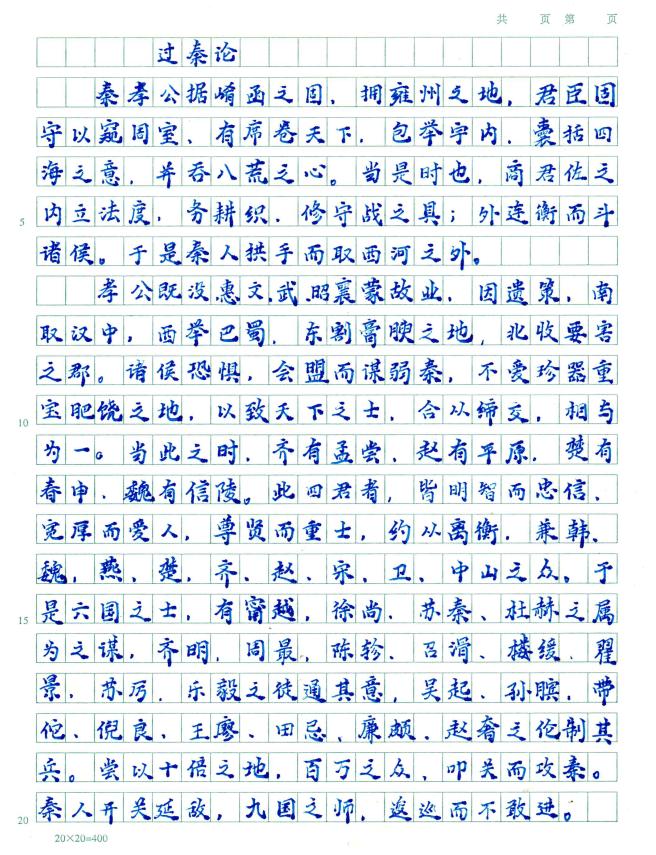 共 页 第 页
过秦论
秦孝公据崤函之固，拥雍州之地，君臣固
守以窥周室、有席卷天下，包举宇内，囊括四
海之意，并吞八荒之心。当是时也，商君佐之
5 内立法度，务耕织，修守战之具；外连衡而斗
诸侯。于是秦人拱手而取西河之外。
孝公既没惠文、武、昭襄蒙故业，因遗策，南
取汉中，西举巴蜀，东割膏腴之地，北收要害
之郡。诸侯恐惧，会盟而谋弱秦，不爱珍器重
10 宝肥饶之地，以致天下之士，合从缔交，相与
为一。当此之时，齐有孟尝，赵有平原，楚有
春申，魏有信陵。此四君者，皆明智而忠信，
宽厚而爱人，尊贤而重士，约从离衡，兼韩、
魏，燕、楚、齐、赵、宋、卫、中山之众。于
15 是六国之士，有甯越，徐尚、苏秦、杜赫之属
为之谋，齐明，周最，陈轸、召滑、楼缓、翟
景，苏厉，乐毅之徒通其意，吴起、孙膑，带
佗、倪良，王廖、田忌、廉颇、赵奢之伦制其
兵。尝以十倍之地，百万之众，叩关而攻秦。
20 秦人开关延敌，九国之师，逡巡而不敢进。
20×20=400